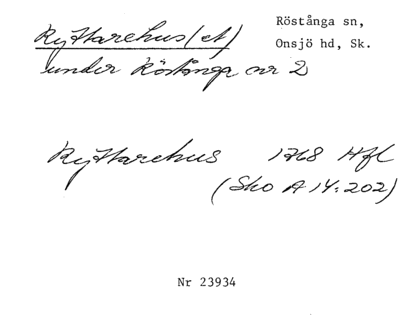 Ryttarehus(et)
Röstånga sn,
Onsjö hd, Sk.
under Röstånga nr 2
Ryttarehus 1768 Hfl
(Sko A 14:202)
Nr 23934